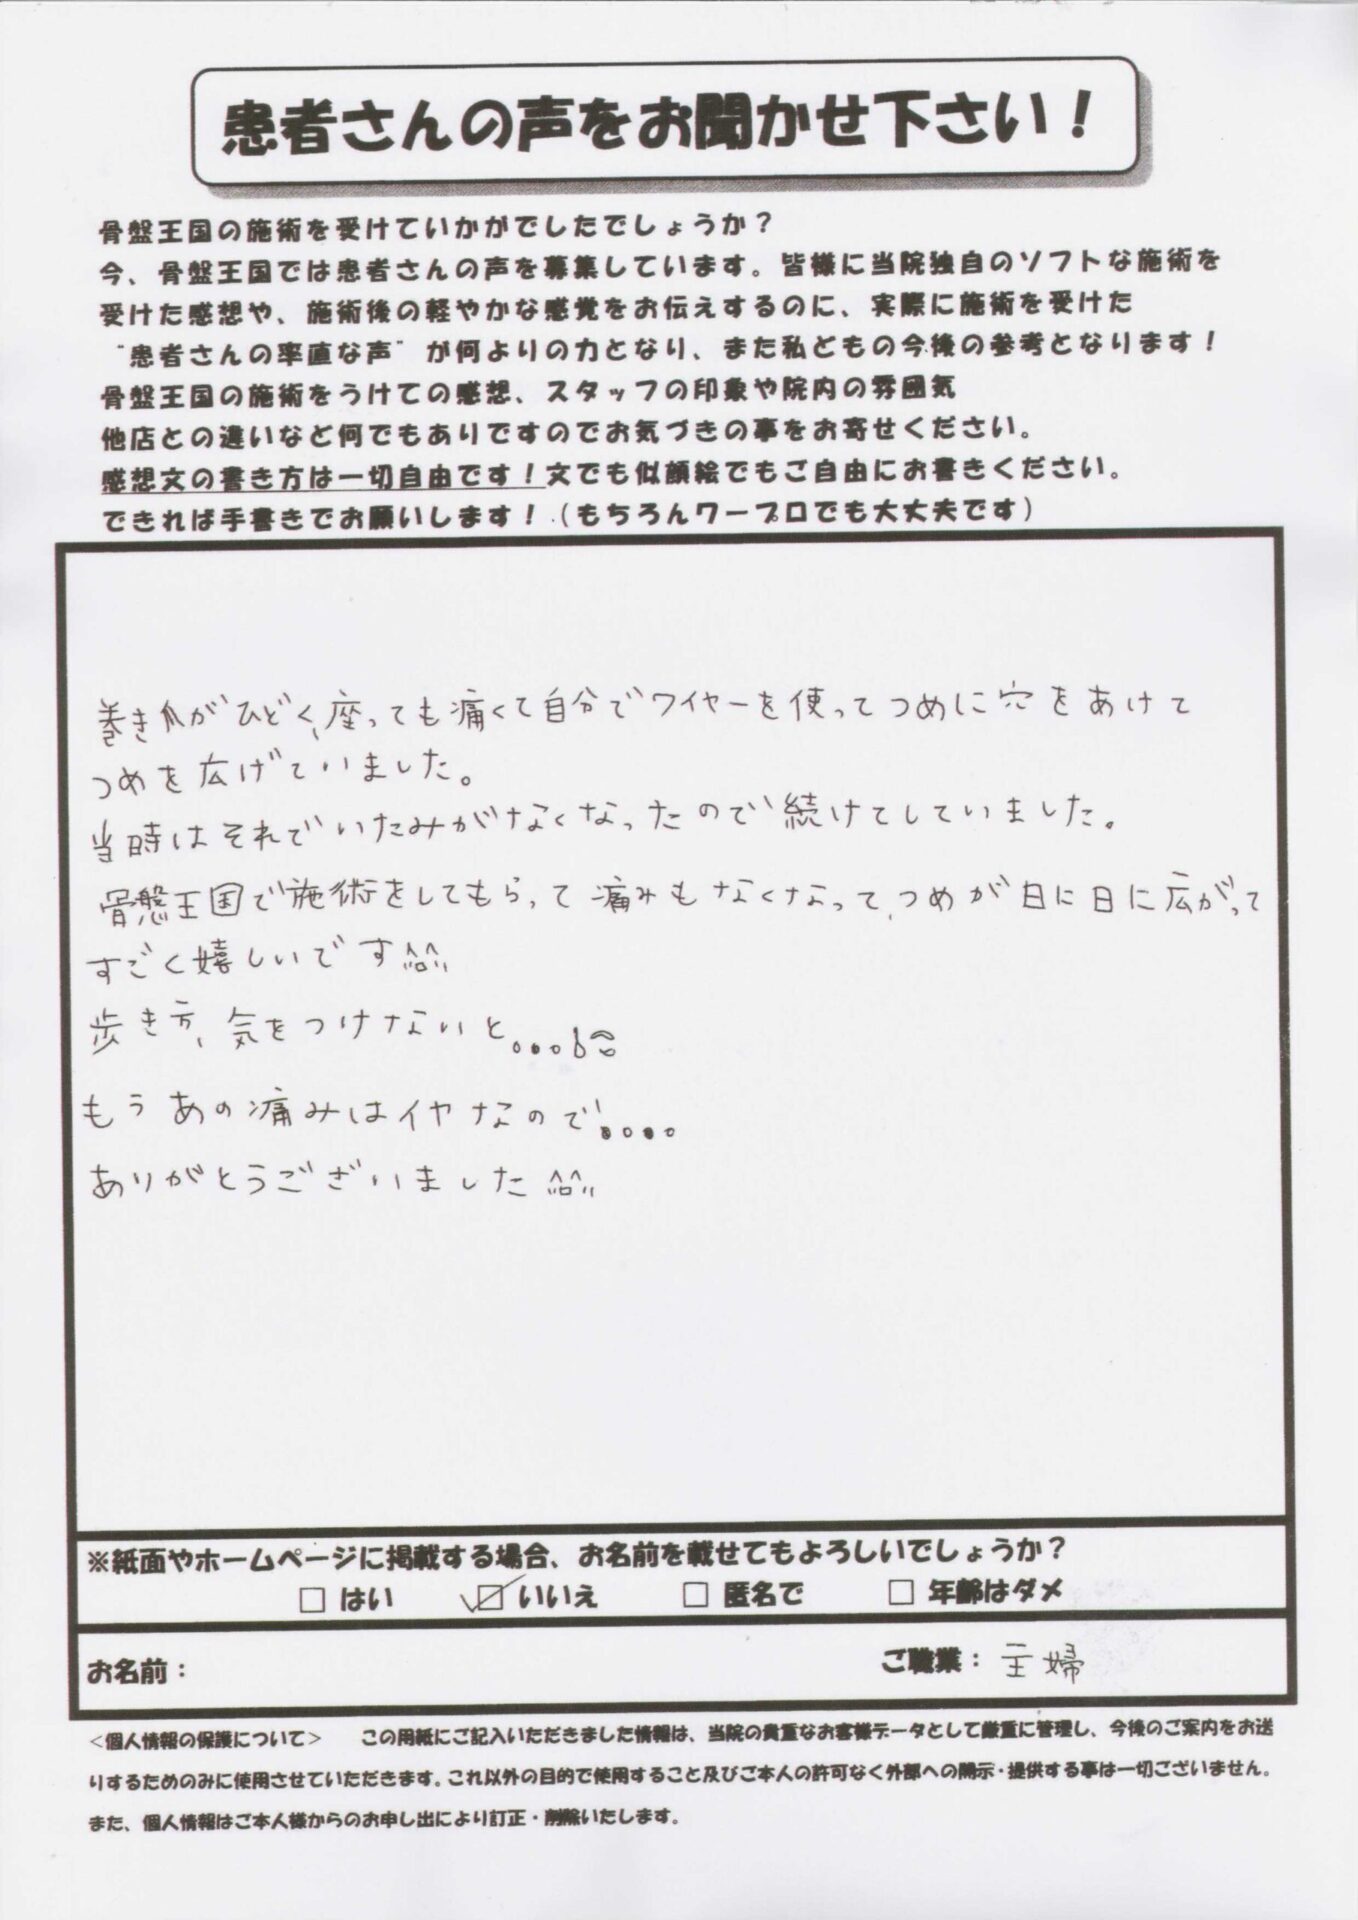 患者さんの声をお聞かせ下さい！
骨盤王国の施術を受けていかがでしたでしょうか？
今、骨盤王国では患者さんの声を募集しています。皆様に当院独自のソフトな施術を
受けた感想や、施術後の軽やかな感覚をお伝えするのに、実際に施術を受けた
"患者さんの率直な声"が何よりの力となり、また私どもの今後の参考となります！
骨盤王国の施術をうけての感想、スタッフの印象や院内の雰囲気
他店との違いなど何でもありですのでお気づきの事をお寄せください。
感想文の書き方は一切自由です！文でも似顔絵でもご自由にお書きください。
できれば手書きでお願いします！（もちろんワープロでも大丈夫です）
巻き爪がひどく、座っても痛くて自分でワイヤーを使ってつめに穴をあけて
つめを広げていました。
当時はそれでいたみがなくなったので続けてしていました。
骨盤王国で施術をしてもらって痛みもなくなって、つめが日に日に広がって
すごく嬉しいです^^
歩き方、気をつけないと。。。
もうあの痛みはイヤなので。。。。
ありがとうございました^^
※紙面やホームページに掲載する場合、お名前を載せてもよろしいでしょうか？
□ はい ☑ いいえ □ 匿名で □ 年齢はダメ
お名前： ご職業：主婦
＜個人情報の保護について＞ この用紙にご記入いただきました情報は、当院の貴重なお客様データとして厳重に管理し、今後のご案内をお送
りするためのみに使用させていただきます。これ以外の目的で使用すること及びご本人の許可なく外部への開示・提供する事は一切ございません。
また、個人情報はご本人様からのお申し出により訂正・削除いたします。